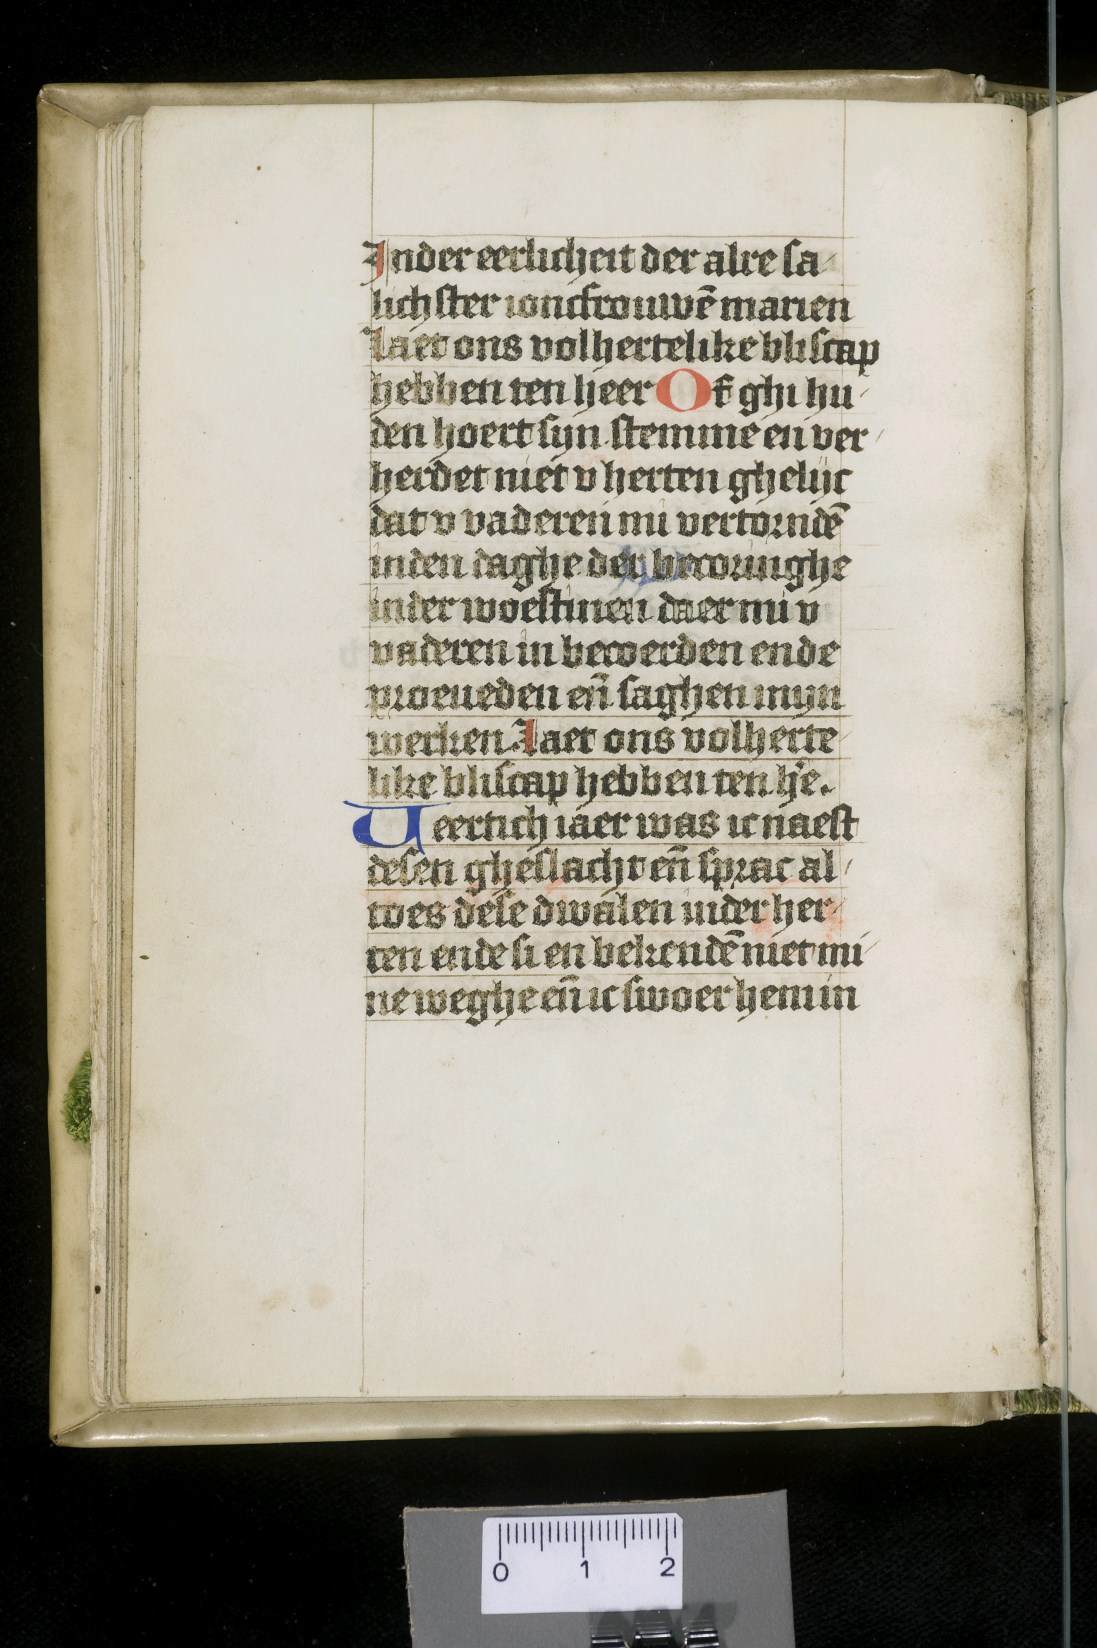 In der eerlicheit der alre sa/
lichster ioncfrouwē marien
laet ons volhertelike bliscap
hebben ten heer Of ghi hu/
den hoert syn stemme en ver/
herdet niet v herten ghelijc
dat v vaderen mi vertorndē
inden daghe der becoringhe
inder woestinen daer mi v
vaderen in becoerden ende
proeueden en̄ saghen mijn
werken Laet ons volherte
like bliscap hebben ten h'e.
Veertich iaer was ic naest
desen gheslacht en̄ sprac al/
toes dese dwalen inder her/
ten ende si en bekendē niet mi/
ne weghe en̄ ic swoer hem in
0 1 2